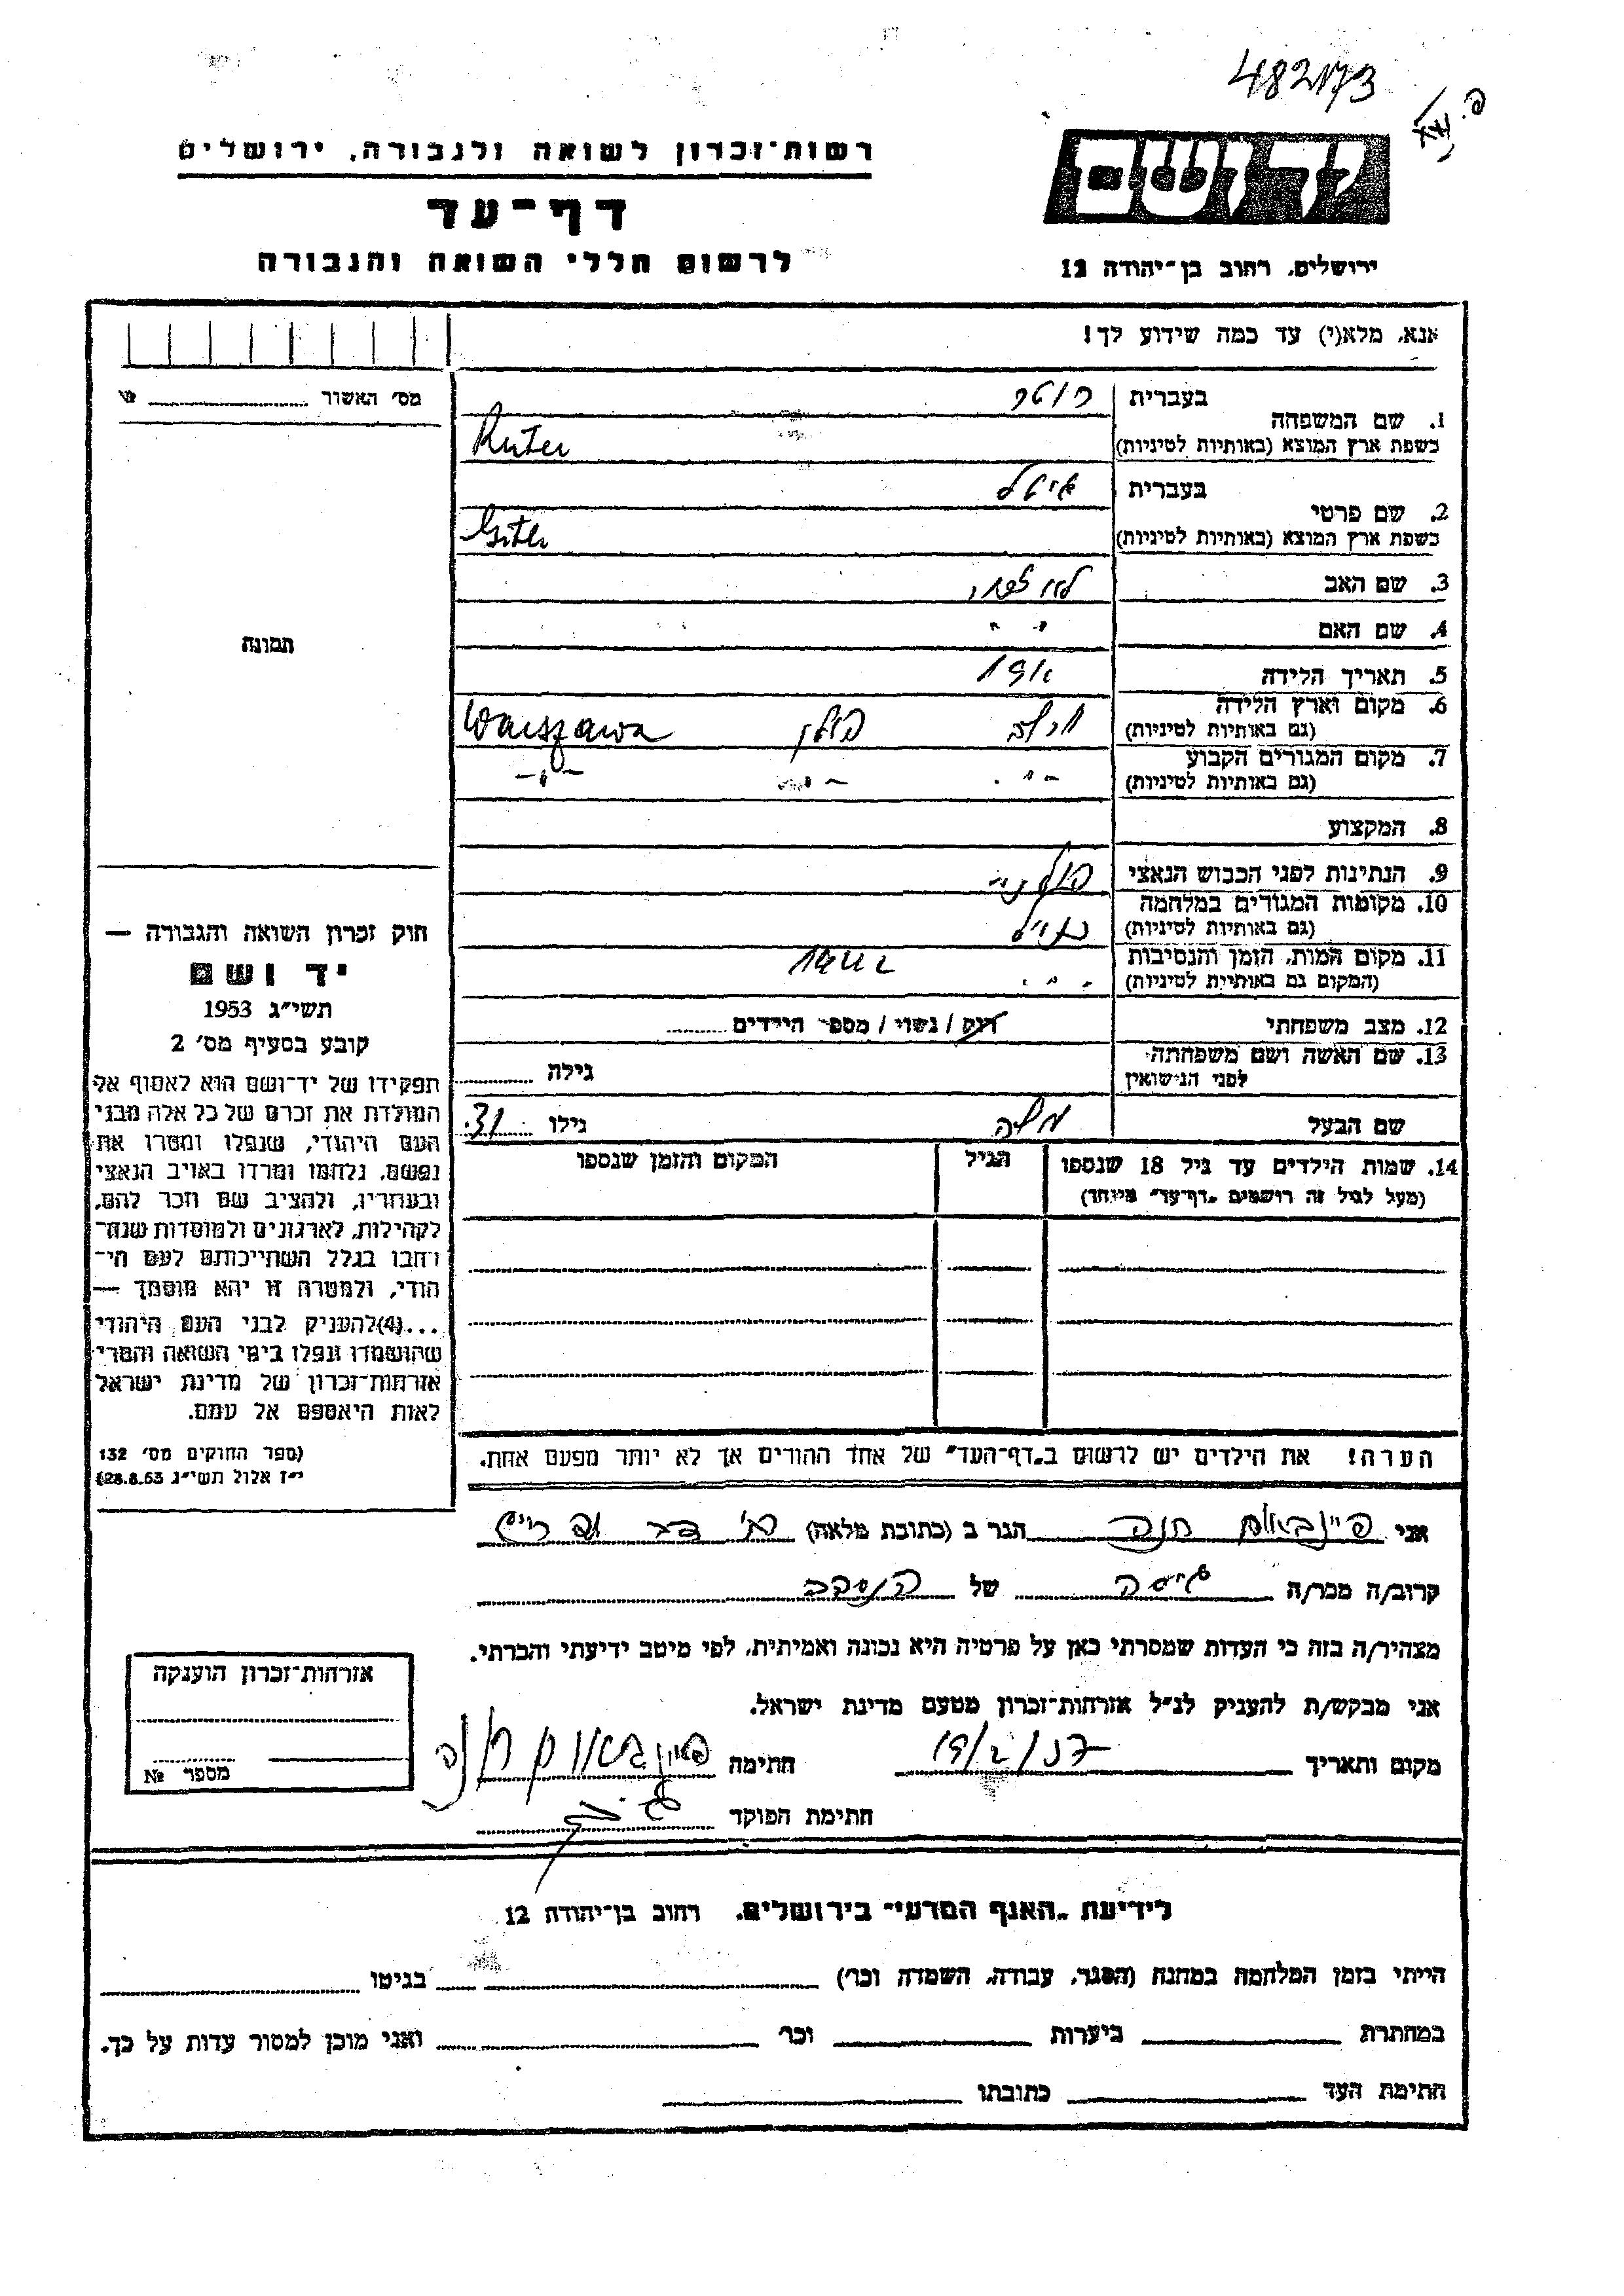 482173
רשות־זכרון לשואה ולגבורה, ירושלים
דף־עד
לרשום חללי השואה והגבורה
יד ושם
ירושלים, רחוב בן־יהודה 12
אנא, מלא(י) עד כמה שידוע לך!
מס׳ האשור
1. שם המשפחה
בעברית רוטר
בשפת ארץ המוצא (באותיות לטיניות) Ruter
2. שם פרטי
בעברית גיטל
בשפת ארץ המוצא (באותיות לטיניות) Gitli
3. שם האב לא ידוע
4. שם האם " "
5. תאריך הלידה
6. מקום וארץ הלידה
(גם באותיות לטיניות) פולין Warszawa
7. מקום המגורים הקבוע
(גם באותיות לטיניות) - " - - " - - " -
8. המקצוע
9. הנתינות לפני הכבוש הנאצי פולנית
10. מקומות המגורים במלחמה
(גם באותיות לטיניות)
11. מקום המות, הזמן והנסיבות
(המקום גם באותיות לטיניות) - " - ב 1942
12. מצב משפחתי רוק / נשוי / מספר הילדים
13. שם האשה ושם משפחתה
לפני הנישואין גילה
שם הבעל משה גילו 31.
14. שמות הילדים עד גיל 18 שנספו
(מעל לגיל זה רושמים „דף־עד״ מיוחד)
הגיל
המקום והזמן שנספו
הערה! את הילדים יש לרשום ב„דף־העד״ של אחד ההורים אך לא יותר מפעם אחת.
תמונה
חוק זכרון השואה והגבורה —
יד ושם
תשי״ג 1953
קובע בסעיף מס׳ 2
תפקידו של יד־ושם הוא לאסוף אל
המולדת את זכרם של כל אלה מבני
העם היהודי, שנפלו ומסרו את
נפשם, נלחמו ומרדו באויב הנאצי
ובעוזריו, ולהציב שם וזכר להם,
לקהילות, לארגונים ולמוסדות שנח־
רבו בגלל השתייכותם לעם הי־
הודי, ולמטרה זו יהא מוסמך —
...(4)להעניק לבני העם היהודי
שהושמדו ונפלו בימי השואה והמרי
אזרחות־זכרון של מדינת ישראל
לאות היאספם אל עמם.
(ספר החוקים מס׳ 132
י״ז אלול תשי״ג 28.8.53)
אני פיינבאום חנה הגר ב (כתובת מלאה)
קרוב/ה מכר/ה גיסה של הנסהב
מצהיר/ה בזה כי העדות שמסרתי כאן על פרטיה היא נכונה ואמיתית, לפי מיטב ידיעתי והכרתי.
אני מבקש/ת להעניק לנ״ל אזרחות־זכרון מטעם מדינת ישראל.
מקום ותאריך 19/2/57 חתימה פיינבאום חנה
חתימת הפוקד
אזרחות־זכרון הוענקה
מספר №
לידיעת „האגף המדעי״ בירושלים, רחוב בן־יהודה 12
הייתי בזמן המלחמה במחנה (הסגר, עבודה, השמדה וכו׳) בגיטו
במחתרת ביערות וכו׳ ואני מוכן למסור עדות על כך.
חתימת העד כתובתו